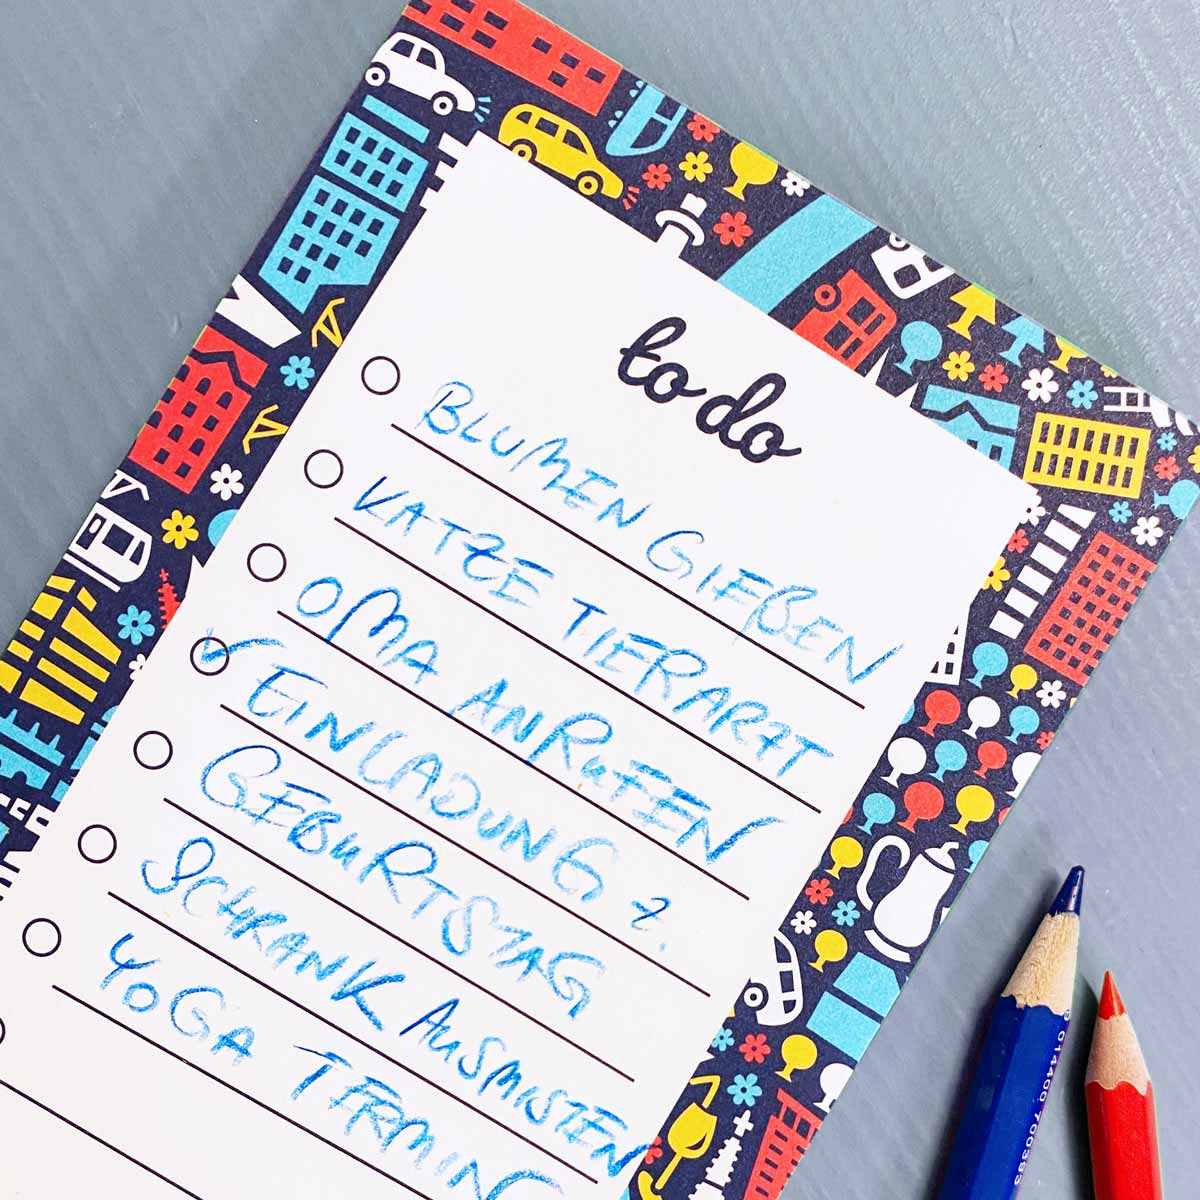 to do
BLUMEN GIEßEN
KATZE TIERARZT
OMA ANRUFEN
EINLADUNG z.
GEBURTSTAG
SCHRANK AUSMISTEN
YOGA TERMIN
014400 700393